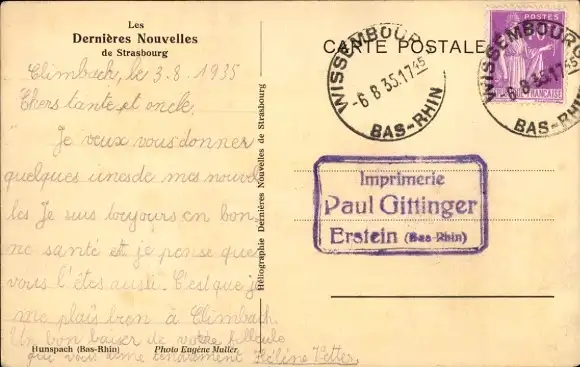 Les
Dernières Nouvelles
de Strasbourg
Climbach, le 3.8.1935
Chers tante et oncle,
Je veux vous donner
quelques unes de mes nouvel
les Je suis toujours en bon
ne santé et je pense que
vous l'êtes aussi. C'est que je
me plais bien à Climbach.
Un bon baiser de votre filleule
qui vous aime tendrement Hélène
Hunspach (Bas-Rhin) Photo Eugène Muller.
Héliographie Dernières Nouvelles de Strasbourg
CARTE POSTALE
WISSEMBOURG
-6 8 35.17 45
BAS-RHIN
POSTES
FRANÇAISE
WISSEMBOURG
-6 8 35.17 45
BAS-RHIN
Imprimerie
Paul Gittinger
Erstein (Bas-Rhin)